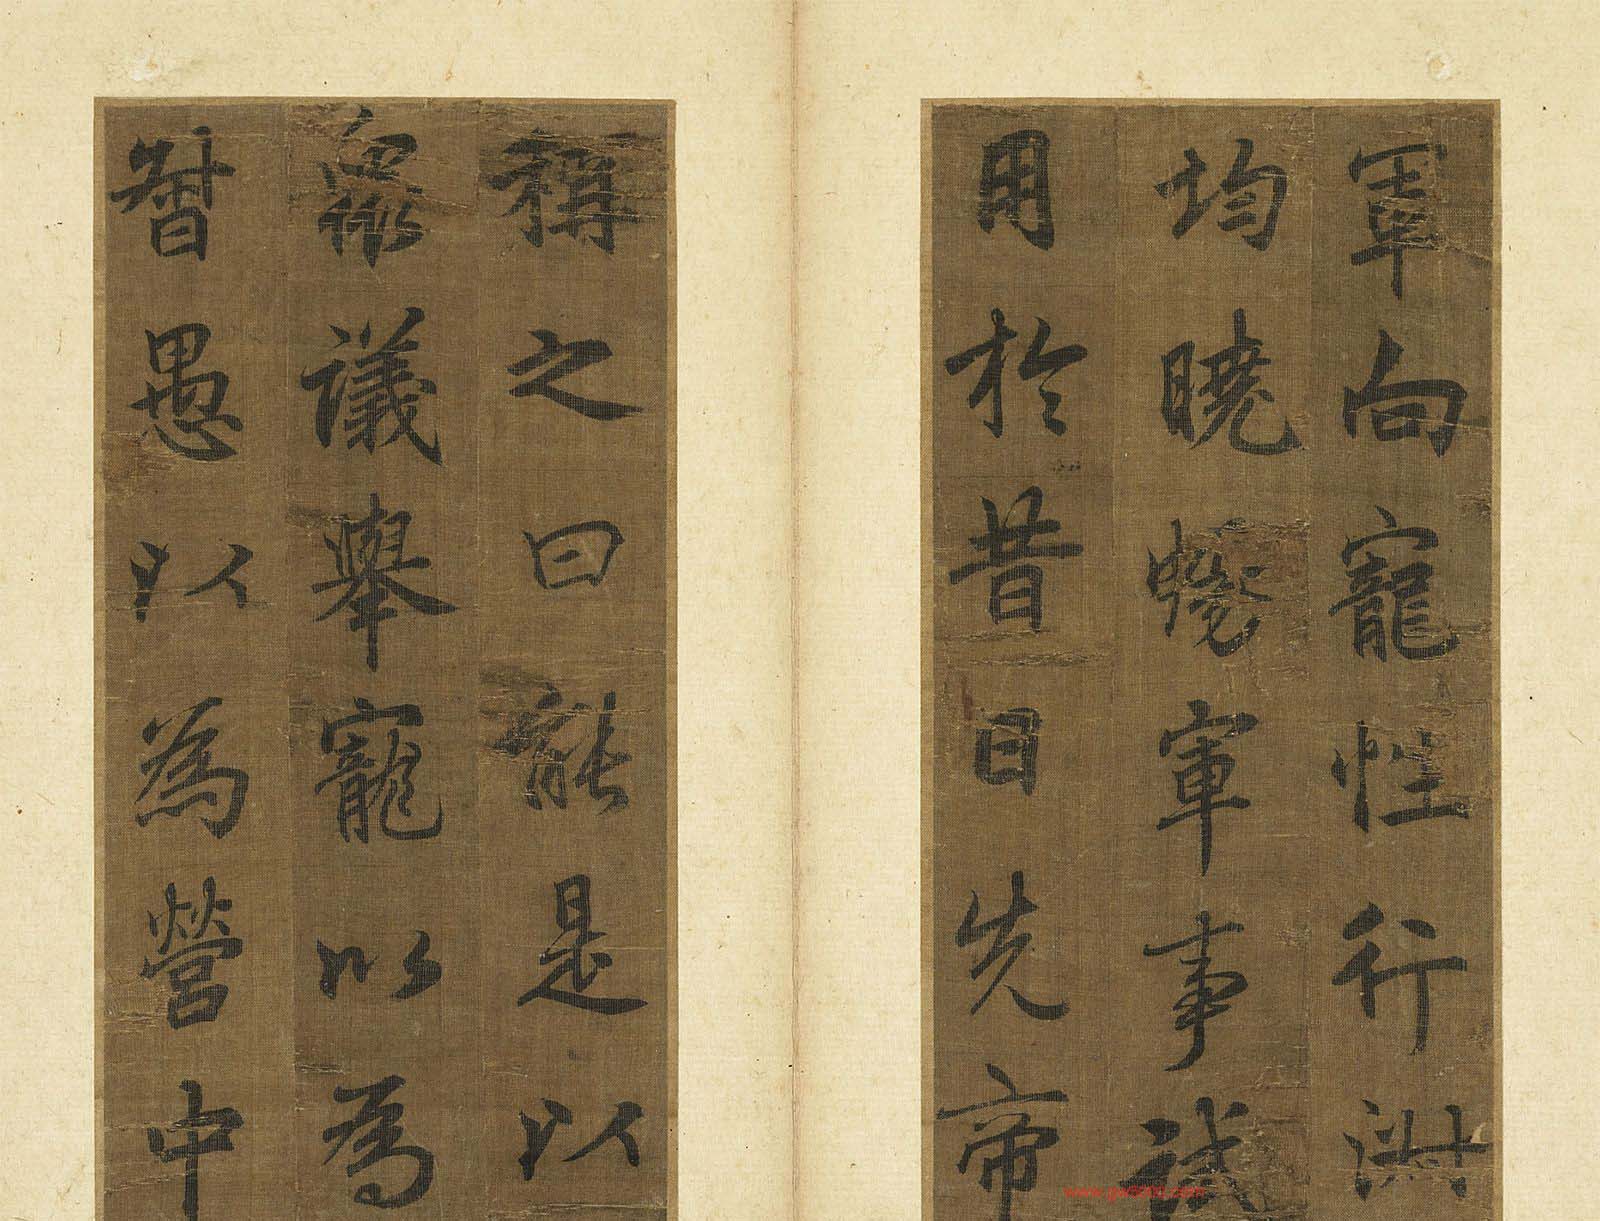 軍向寵性行淑
均曉暢軍事試
用於昔日先帝
稱之曰能是以
眾議舉寵以為
督愚以為營中
www.gu8000.com